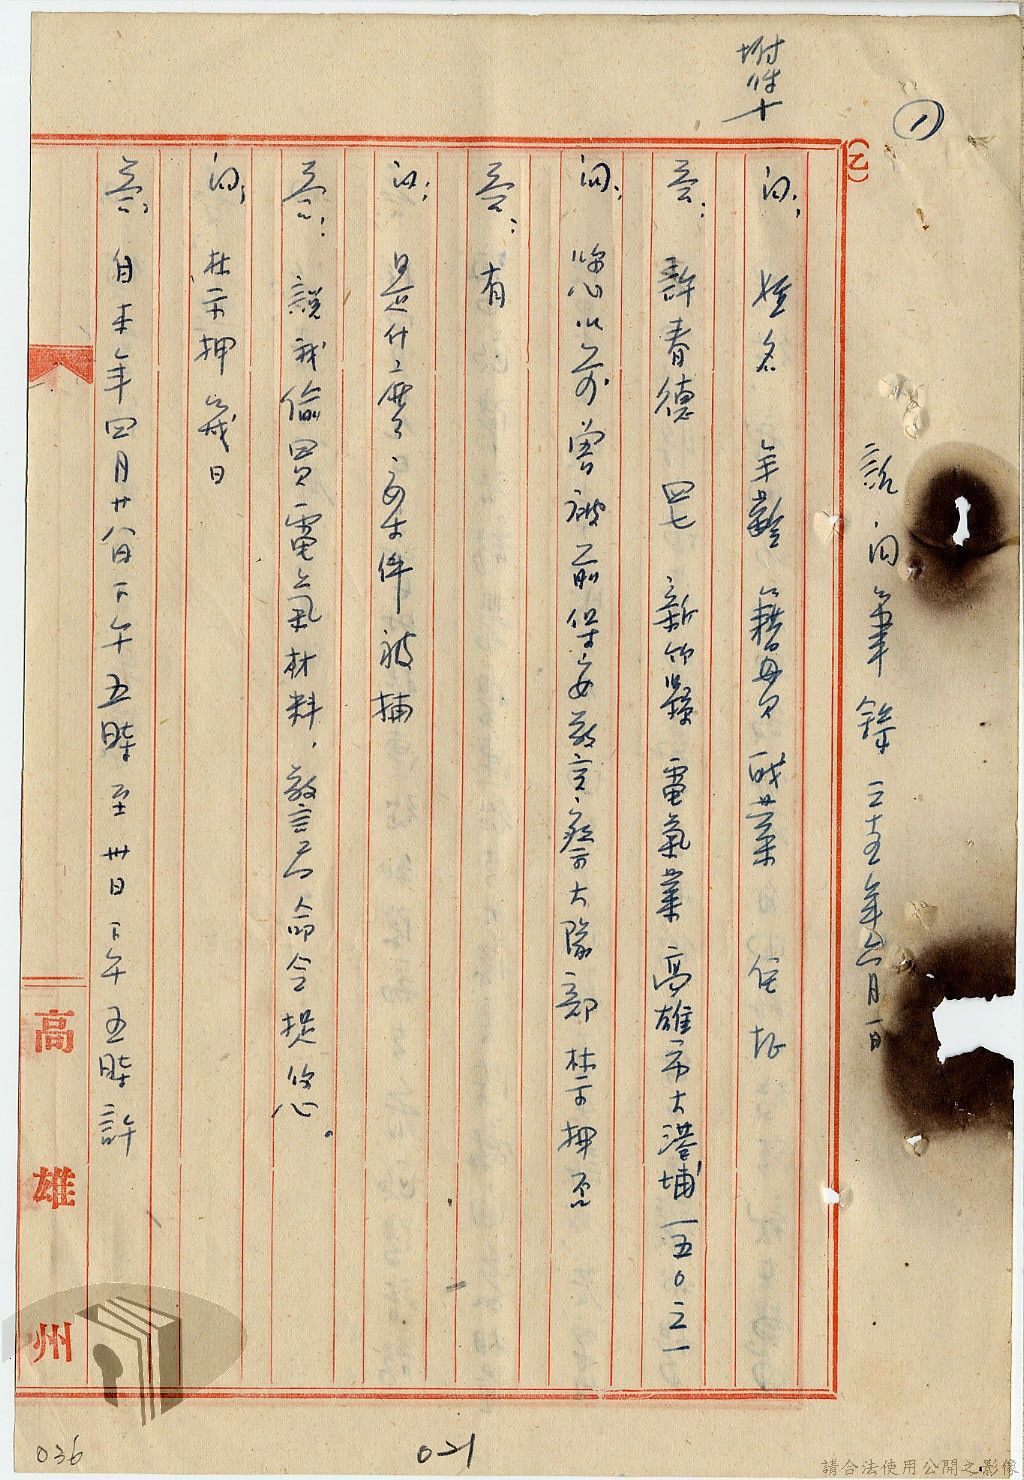 ①
附件十
(乙)
訊问筆錄 三十五年六月一日
问：姓名 年齡 籍貫 職業 住址
答：許春德 四七 新竹縣 電氣業 高雄市大港埔一五〇之一
问：您以前曾被前保安警察大隊部禁押否
答：有
问：是什么案件被捕
答：說我偷買電氣材料，警言命令捉您。
问：禁押幾日
答：自本年四月廿八日下午五時至卅日下午五時許
高雄州
036
021
請合法使用公開之影像